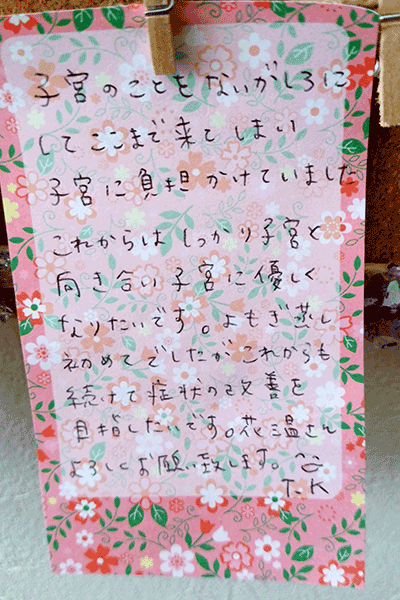 子宮のことをないがしろに
してここまで来てしまい
子宮に負担かけていました
これからはしっかり子宮と
向き合い子宮に優しく
なりたいです。よもぎ蒸し
初めてでしたがこれからも
続けて症状の改善を
目指したいです。花温さん
よろしくお願い致します。
T.K